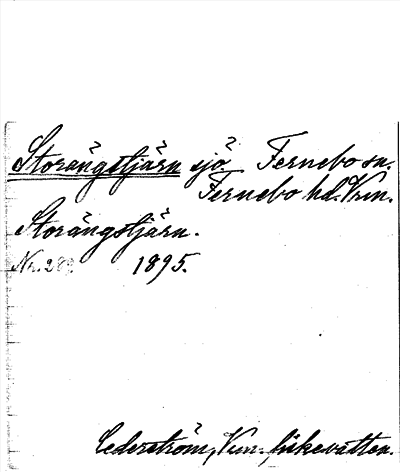 Storängstjärn sjö. Fernebo sn.
Fernebo hd. Vrm.
Storängstjärn.
Nr. 289 1895.
Cederström, Vrm. fiskevatten.